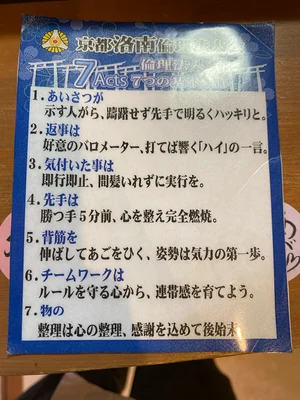 京都洛南倫理法人会
倫理法人
7 Acts 7つの
1. あいさつが
示す人がら、躊躇せず先手で明るくハッキリと。
2. 返事は
好意のバロメーター、打てば響く「ハイ」の一言。
3. 気付いた事は
即行即止、間髪いれずに実行を。
4. 先手は
勝つ手5分前、心を整え完全燃焼。
5. 背筋を
伸ばしてあごをひく、姿勢は気力の第一歩。
6. チームワークは
ルールを守る心から、連帯感を育てよう。
7. 物の
整理は心の整理、感謝を込めて後始末